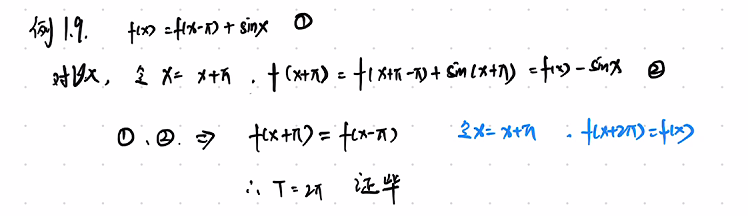 例1.9. f(x)=f(x-π)+sinx ①
对∀x, 令 x=x+π . f(x+π)=f(x+π-π)+sin(x+π)=f(x)-sinx ②
①、②. ⇒ f(x+π)=f(x-π) 令x=x+π . f(x+2π)=f(x)
∴ T=2π 证毕